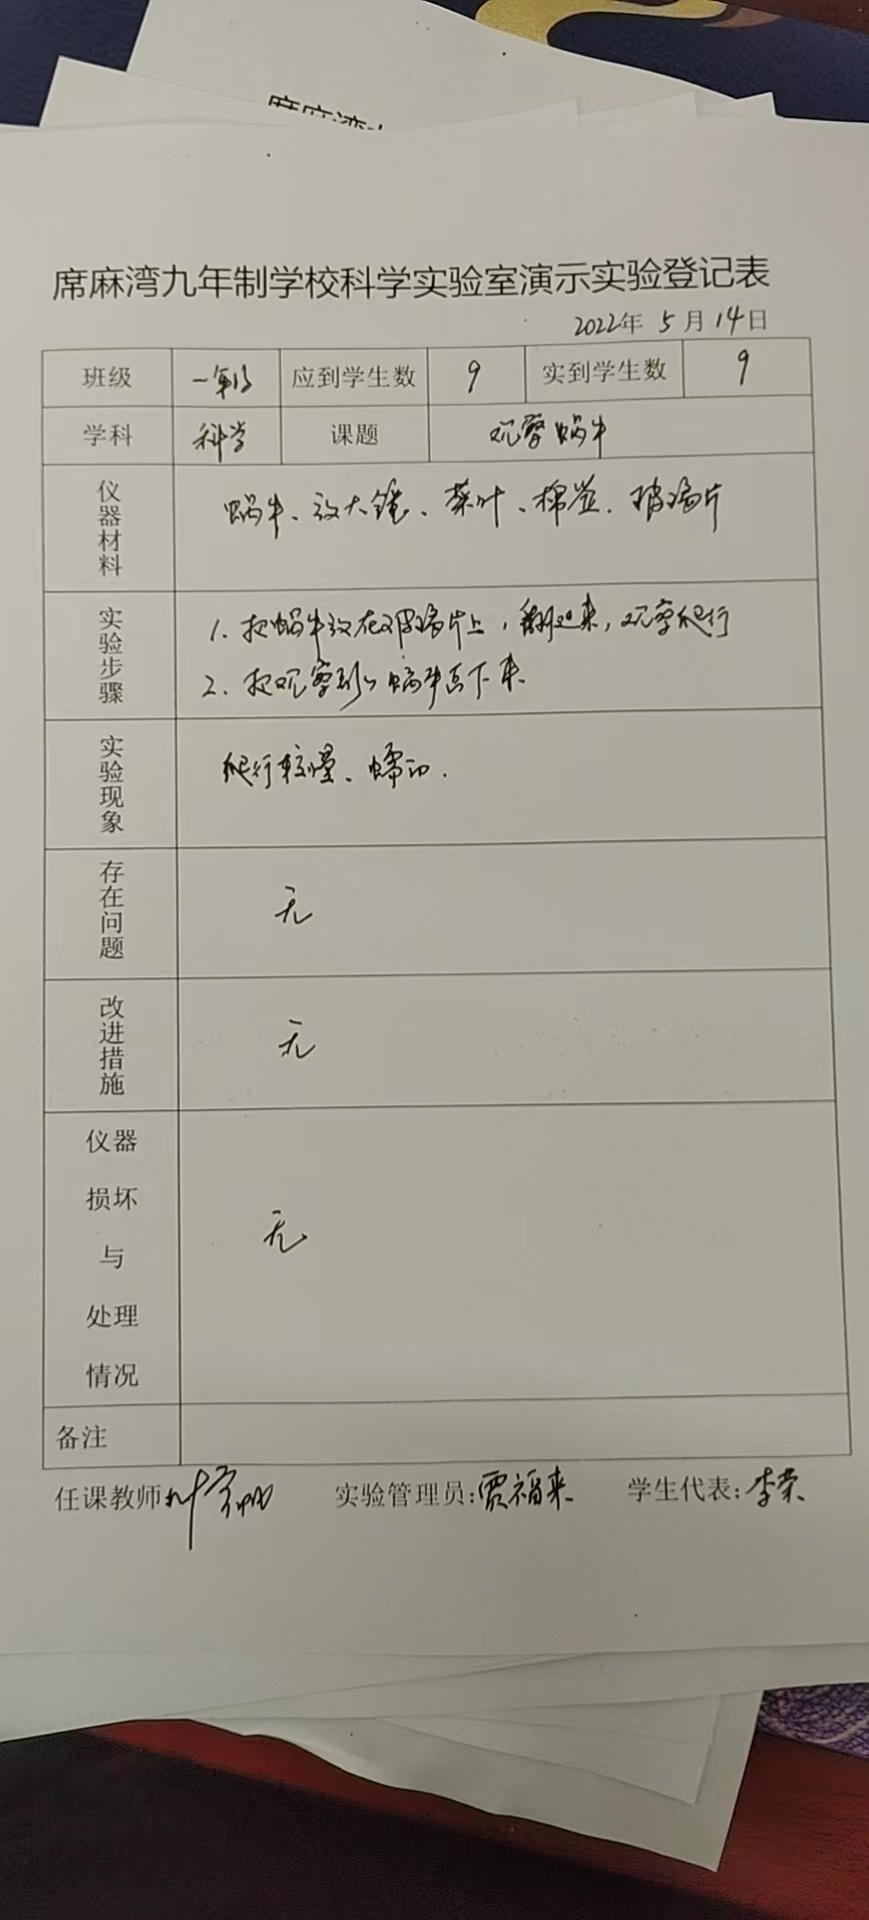 席麻湾九年制学校科学实验室演示实验登记表
2022年 5月14日
班级 一年级 应到学生数 9 实到学生数 9
学科 科学 课题 观察蜗牛
仪器材料 蜗牛、放大镜、菜叶、棉签、玻璃片
实验步骤 1. 把蜗牛放在玻璃片上，翻过来，观察爬行
2. 把观察到的蜗牛画下来
实验现象 爬行较慢、蠕动.
存在问题 无
改进措施 无
仪器损坏与处理情况 无
备注
任课教师 实验管理员:贾福来 学生代表:李荣